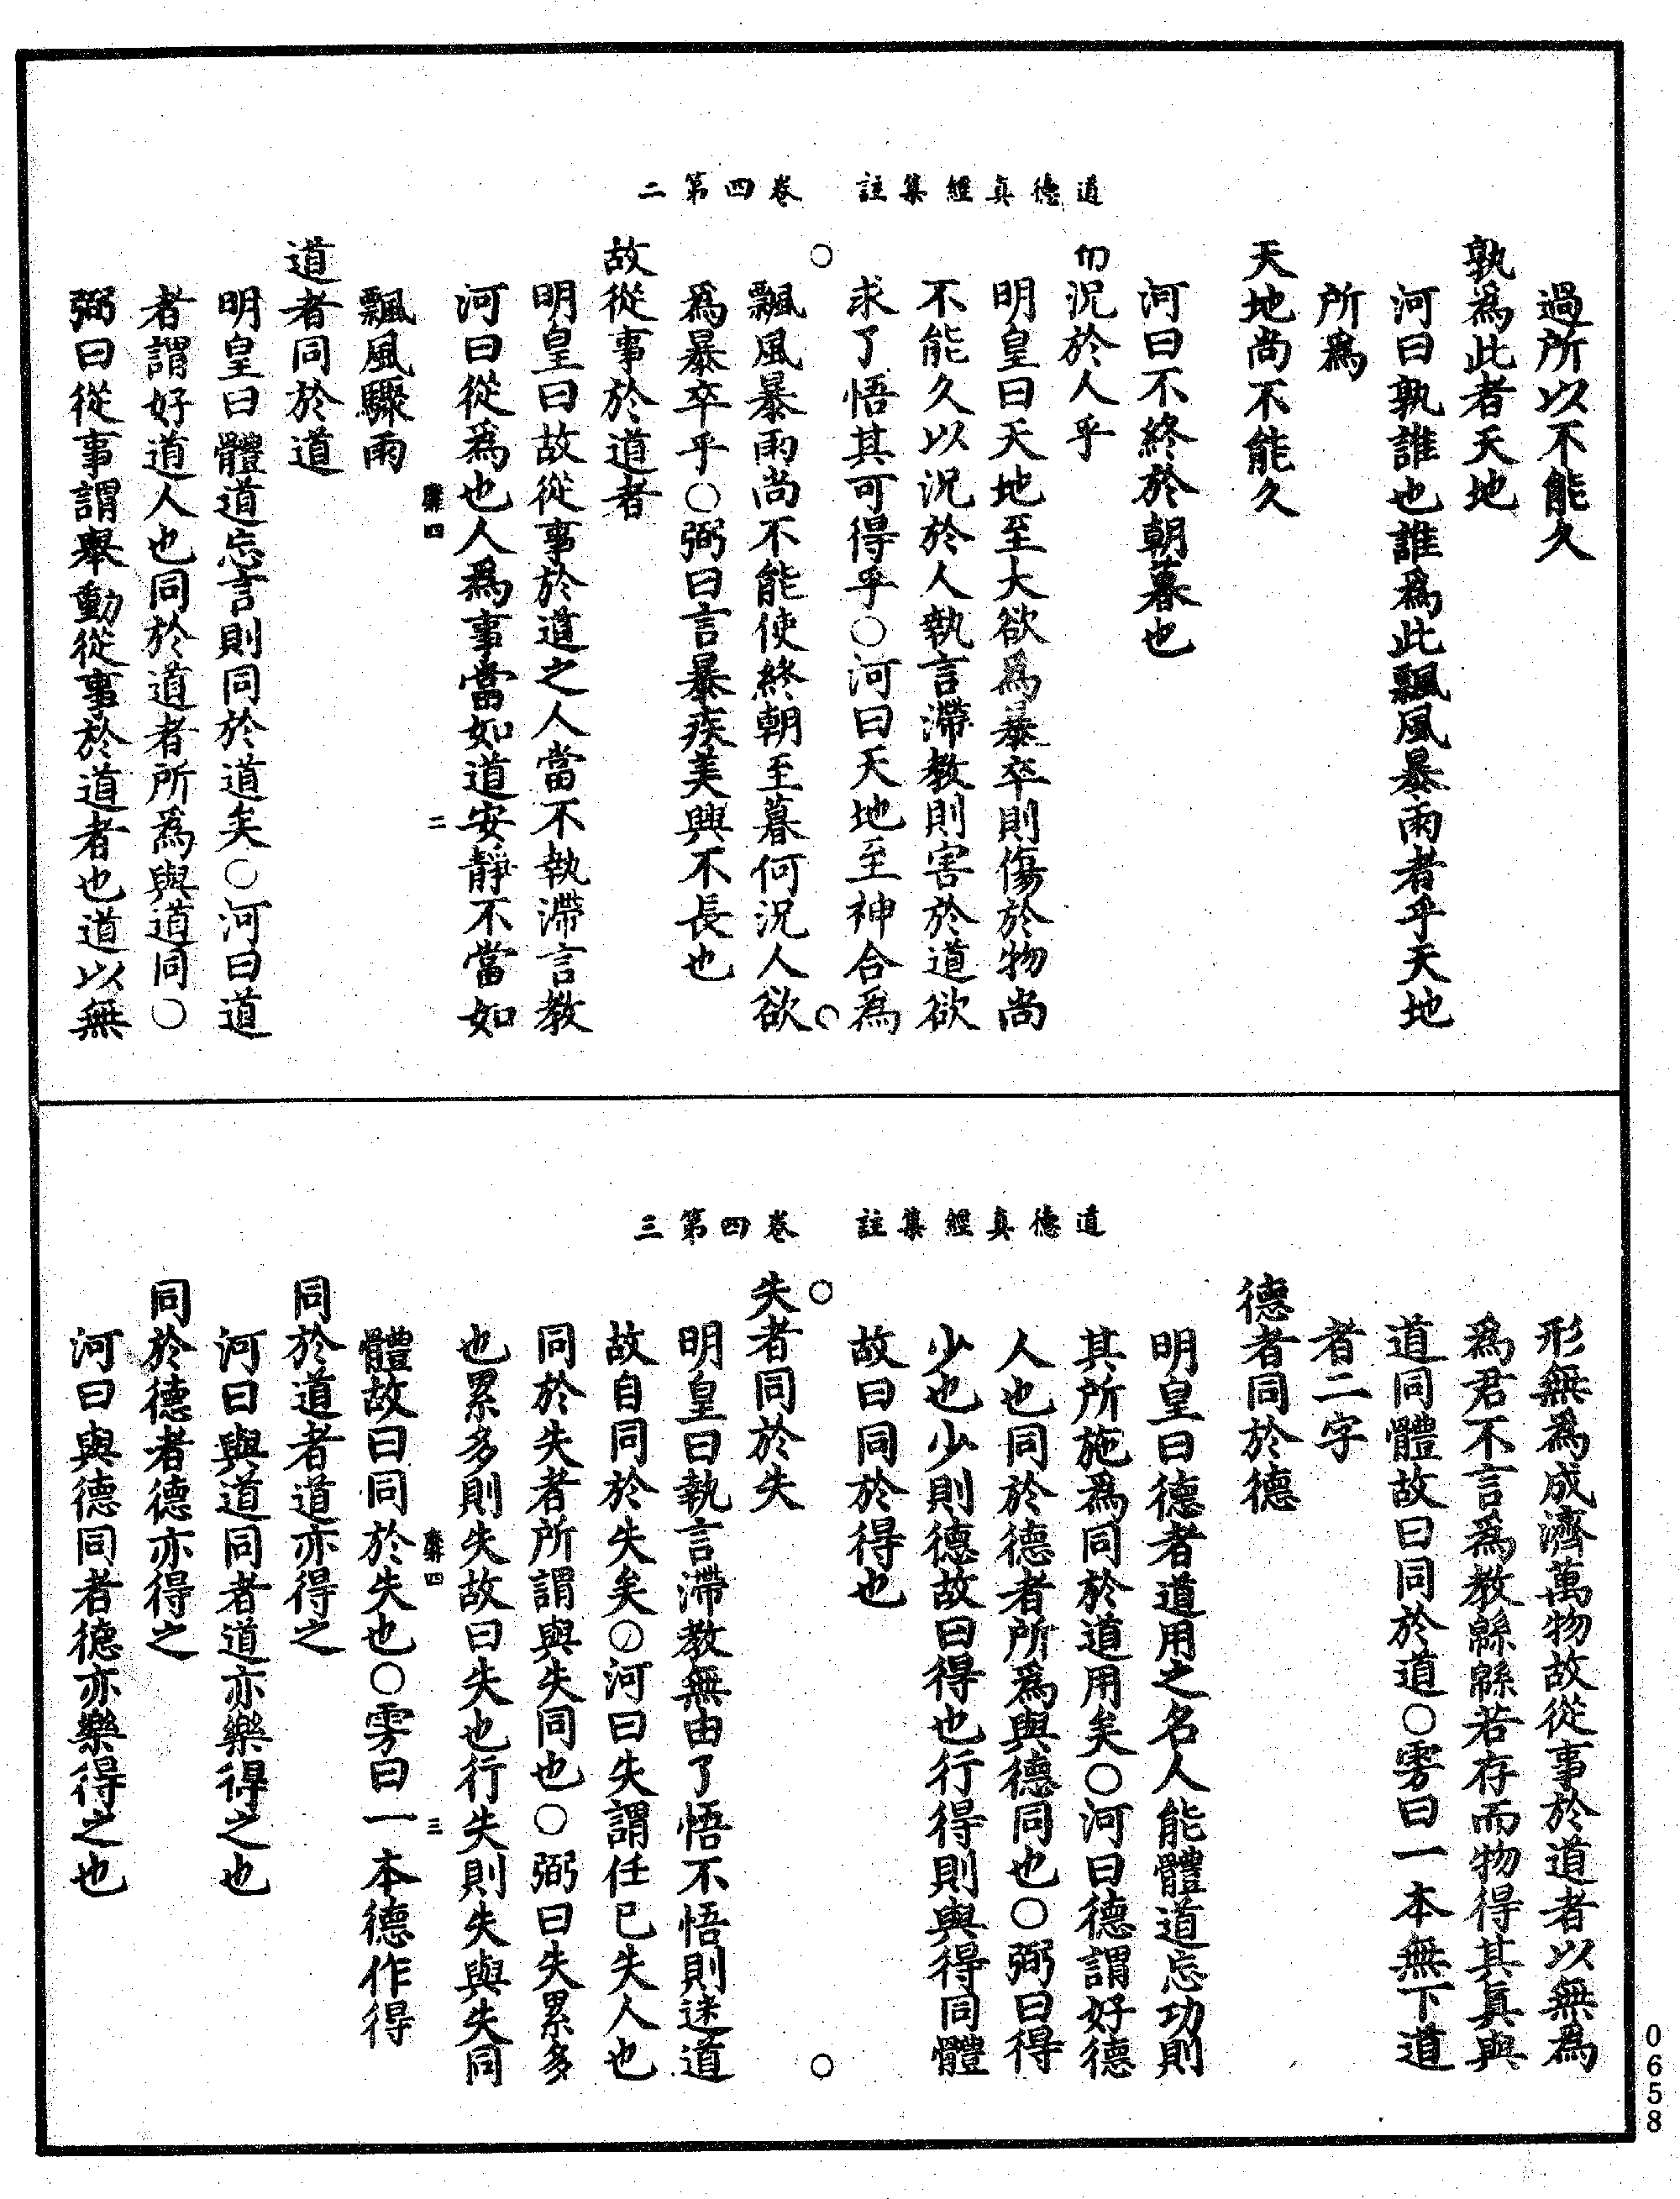 道德真經集註　卷四第二
過所以不能久
孰為此者天地
河曰孰誰也誰為此飄風暴雨者乎天地
所為
天地尚不能久
河曰不終於朝暮也
而況於人乎
明皇曰天地至大欲為暴卒則傷於物尚
不能久以況於人執言滯教則害於道欲
求了悟其可得乎○河曰天地至神合為
飄風暴雨尚不能使終朝至暮何況人欲
為暴卒乎○弼曰言暴疾美興不長也
故從事於道者
明皇曰故從事於道之人當不執滯言教
河曰從為也人為事當如道安靜不當如
飄風驟雨
道者同於道
明皇曰體道忘言則同於道矣○河曰道
者謂好道人也同於道者所為與道同○
弼曰從事謂舉動從事於道者也道以無
道德真經集註　卷四第三
形無為成濟萬物故從事於道者以無為
為君不言為教緜緜若存而物得其真與
道同體故曰同於道○雱曰一本無下道
者二字
德者同於德
明皇曰德者道用之名人能體道忘功則
其所施為同於道用矣○河曰德謂好德
人也同於德者所為與德同也○弼曰得
少也少則德故曰得也行得則與得同體
故曰同於得也
失者同於失
明皇曰執言滯教無由了悟不悟則迷道
故自同於失矣○河曰失謂任已失人也
同於失者所謂與失同也○弼曰失累多
也累多則失故曰失也行失則失與失同
體故曰同於失也○雱曰一本德作得
同於道者道亦得之
河曰與道同者道亦樂得之也
同於德者德亦得之
河曰與德同者德亦樂得之也
0658